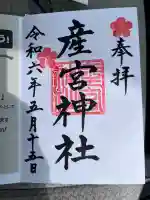 奉拝
産宮神社
令和六年五月十五日